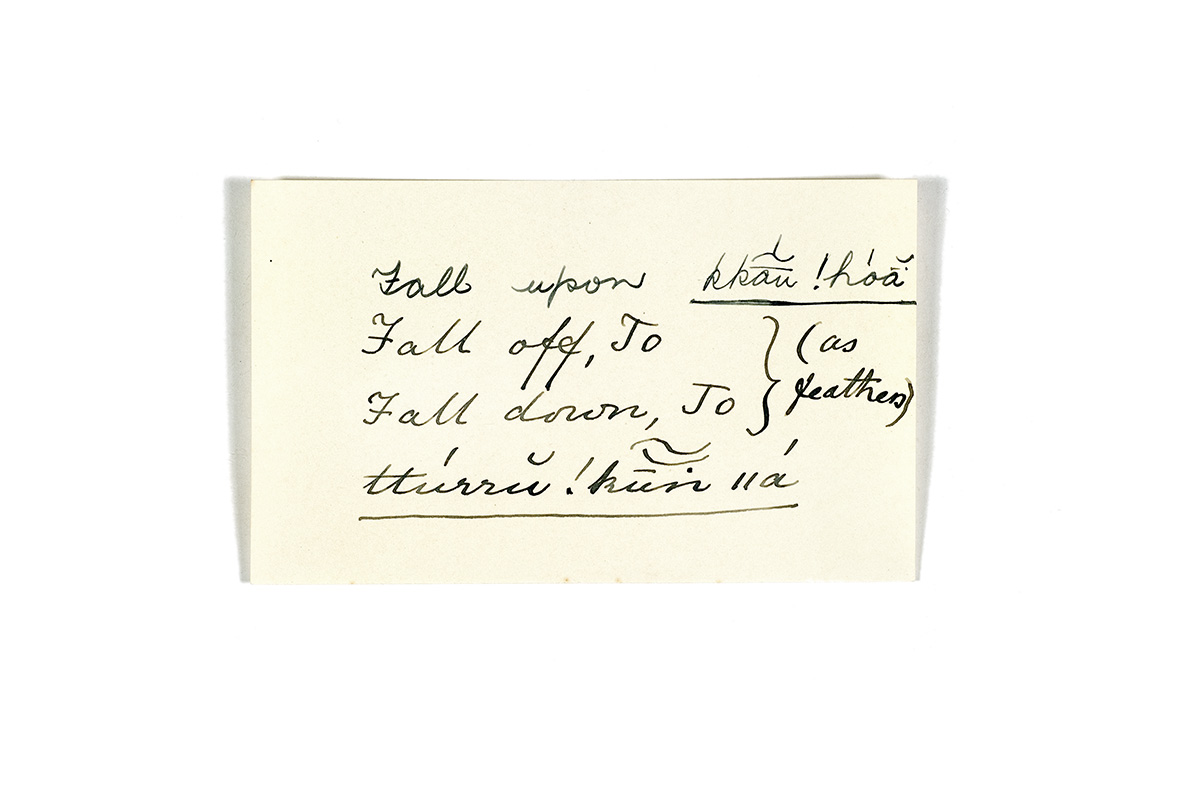 Fall upon kkā̰ŭ !hóă
Fall off, To } (as
Fall down, To } feathers)
ttúrrŭ !kū̃ïn ǁá